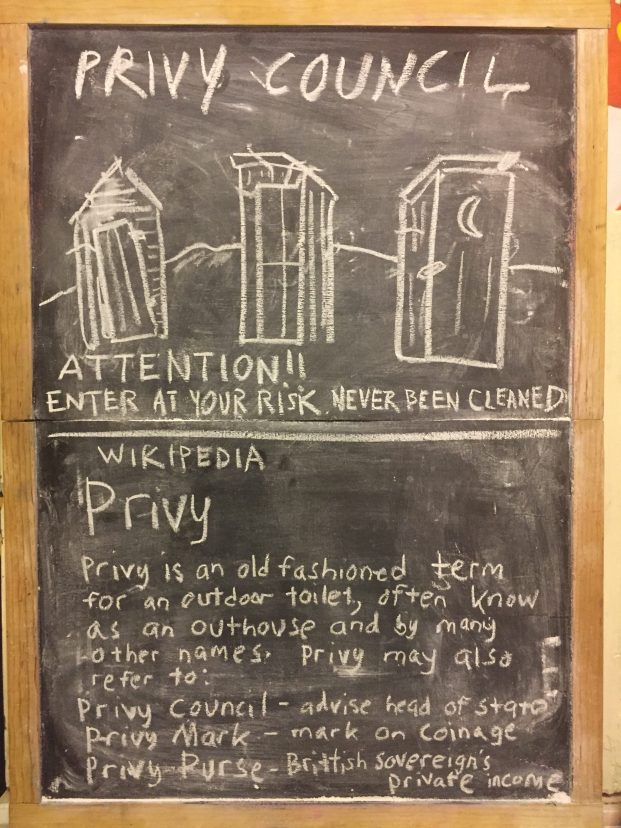 PRIVY COUNCIL
ATTENTION!!
ENTER AT YOUR RISK. NEVER BEEN CLEANED
WIKIPEDIA
Privy
Privy is an old fashioned term
for an outdoor toilet, often know
as an outhouse and by many
other names. Privy may also
refer to:
Privy Council - advise head of state
Privy Mark - mark on Coinage
Privy Purse - Brittish Sovereign's
private income